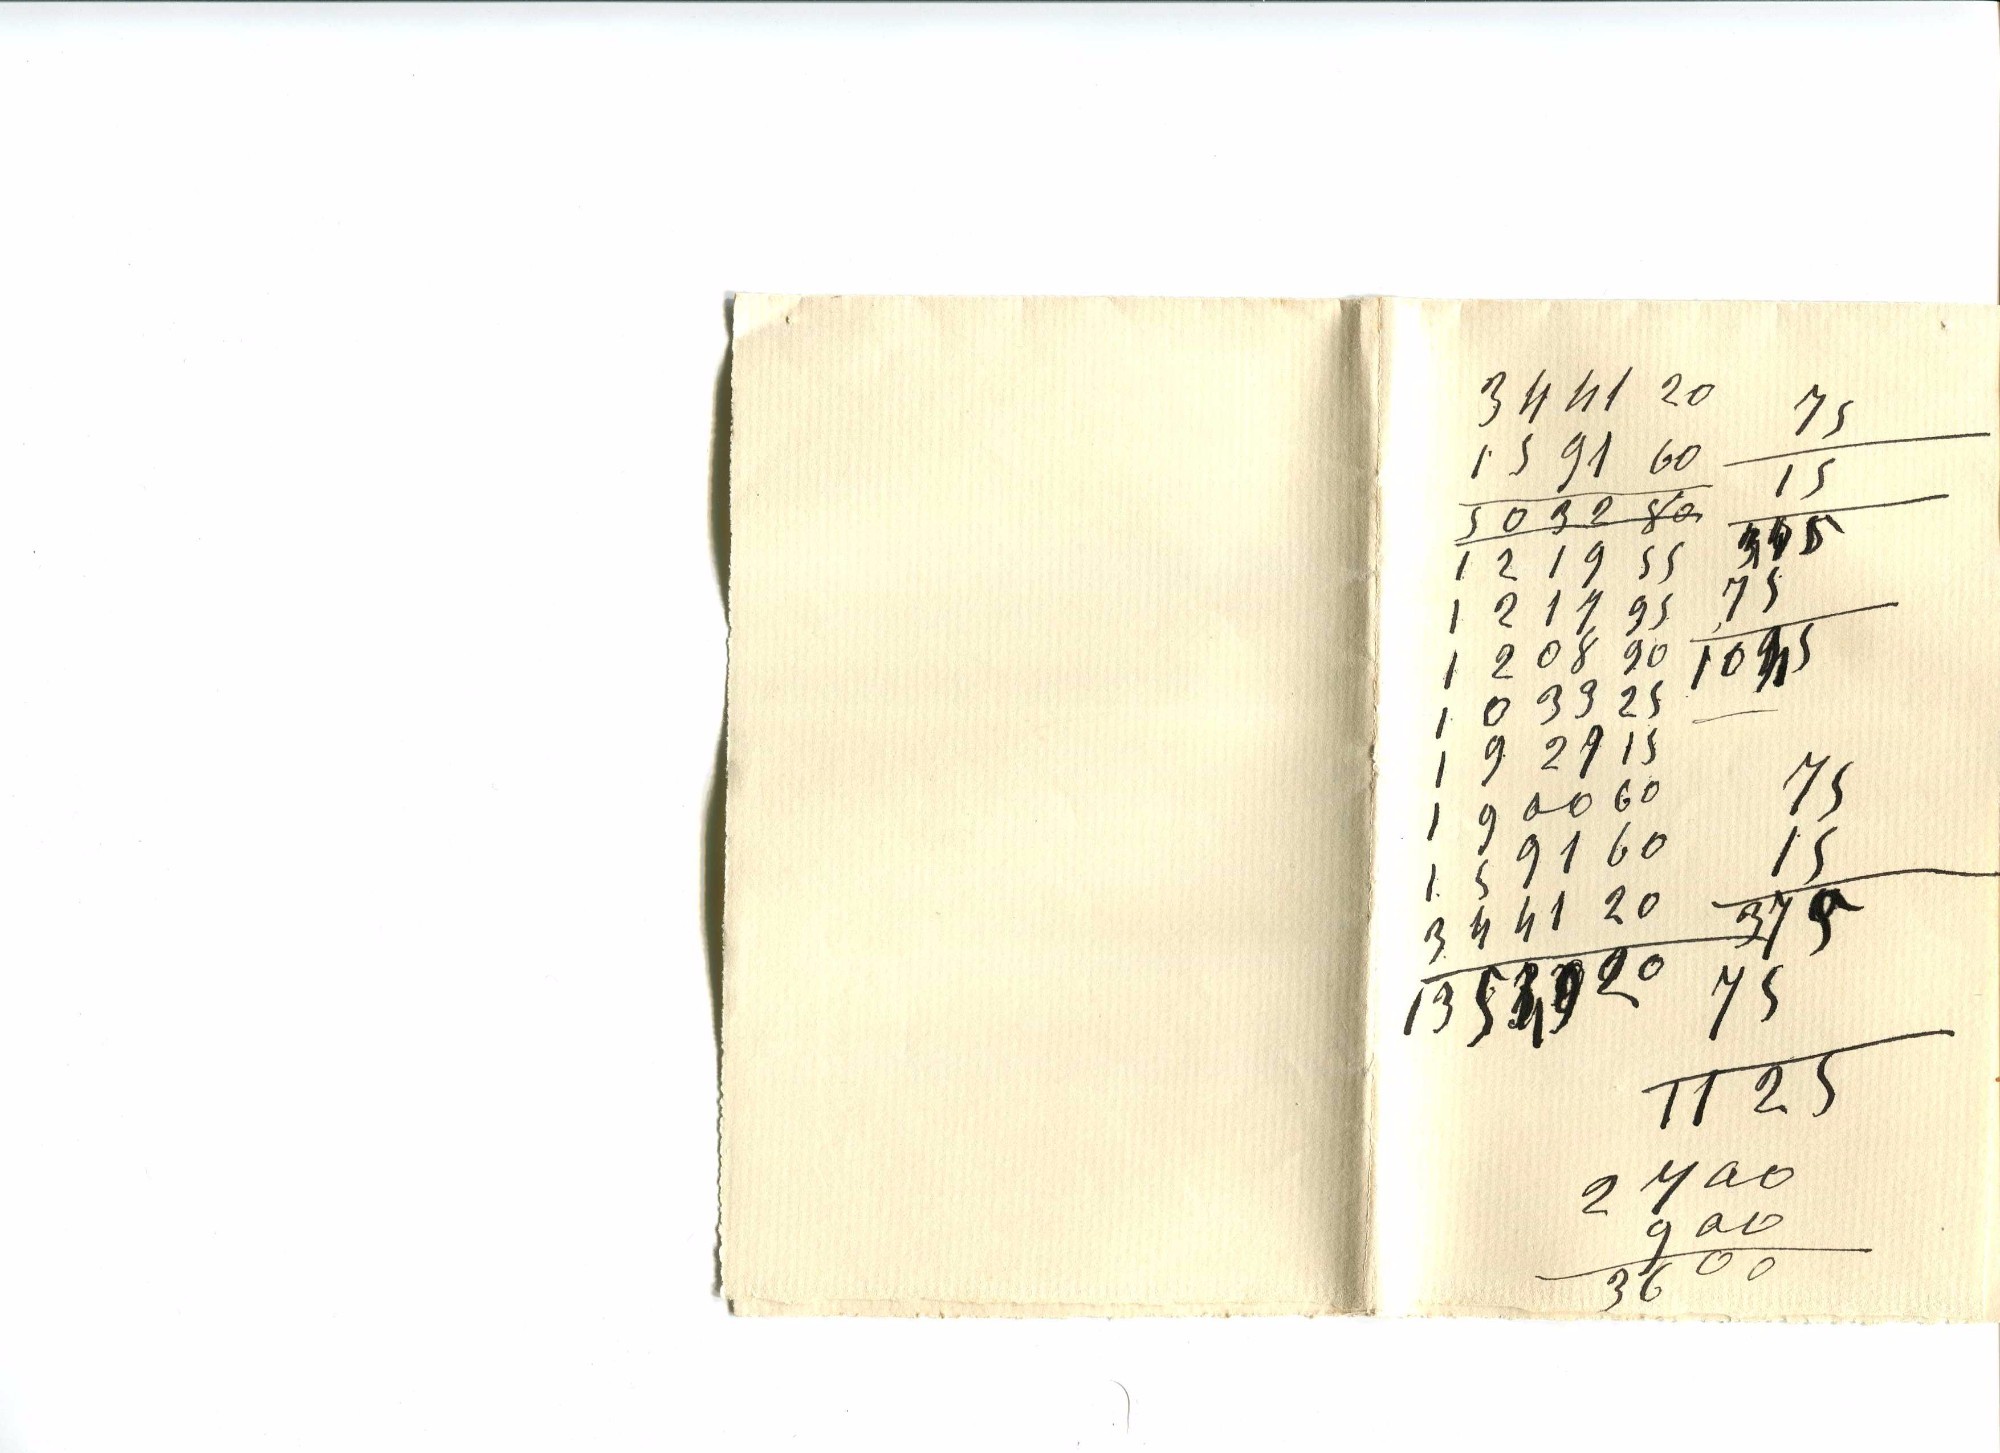 3441 20
1591 60
5032 80
1219 55
1217 95
1208 90
1033 25
1927 15
1900 60
1591 60
3441 20
75
15
375
75
75
15
375
75
1125
2700
900
3600